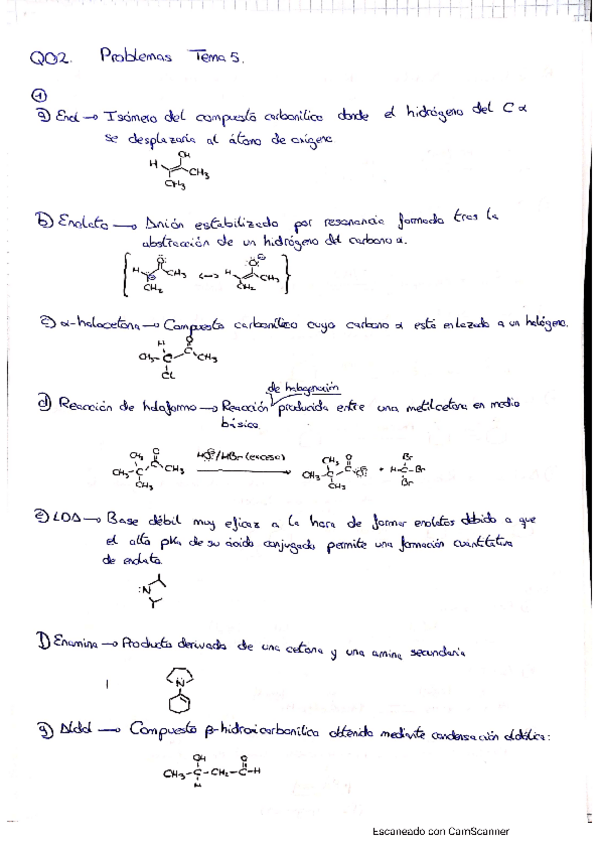 QO2. Problemas Tema 5.
①
a) Enol → Isómero del compuesto carbonílico donde el hidrógeno del C α
se desplazaría al átomo de oxígeno
OH
H
CH₃
CH₃
b) Enolato → Anión estabilizado por resonancia formado tras la
abstracción de un hidrógeno del carbono α.
H CH₃ ↔ H CH₃
CH₂ CH₂
c) α-halocetona → Compuesto carbonílico cuyo carbono α está enlazado a un halógeno.
H O
CH₃-C-C CH₃
Cl
de halogenación
d) Reacción de haloformo → Reacción producida entre una metilcetona en medio
básico.
CH₃ O CH₃ O Br
CH₃-C-C CH₃ HO⊖/HBr (exceso) → CH₃-C-C O⊖ + H-C-Br
CH₃ CH₃ Br
e) LDA → Base débil muy eficaz a la hora de formar enolatos debido a que
el alto pKa de su ácido conjugado permite una formación cuantitativa
de enolato.
:N
f) Enamina → Producto derivado de una cetona y una amina secundaria
N
g) Aldol → Compuesto β-hidroxicarbonílico obtenido mediante condensación aldólica:
OH O
CH₃-C-CH₂-C-H
H
Escaneado con CamScanner